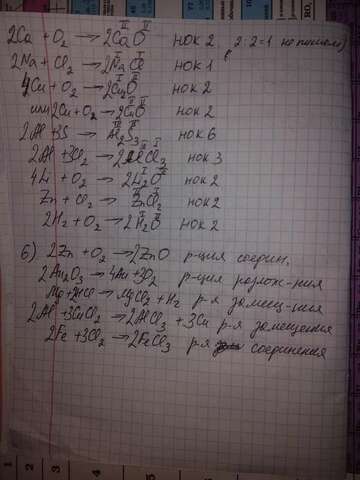 2Ca + O₂ → 2CaO нок 2, 2:2=1 не пишем)
2Na + Cl₂ → 2NaCl нок 1
4Cu + O₂ → 2Cu₂O нок 2
или 2Cu + O₂ → 2CuO нок 2
2Al + 3S → Al₂S₃ нок 6
2Al + 3Cl₂ → 2AlCl₃ нок 3
4Li + O₂ → 2Li₂O нок 2
Zn + Cl₂ → ZnCl₂ нок 2
2H₂ + O₂ → 2H₂O нок 2
б) 2Zn + O₂ → 2ZnO р-ция соедин.
2Au₂O₃ → 4Au + 3O₂ р-ция разлож-ния
Mg + 2HCl → MgCl₂ + H₂ р-я замещ-ния
2Al + 3CuCl₂ → 2AlCl₃ + 3Cu р-я замещения
2Fe + 3Cl₂ → 2FeCl₃ р-я соединения
1 2 3 4